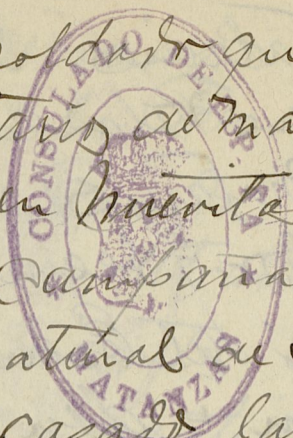 soldado qu
años de Ma
en Nuevita
Campaña
atural de
casado la
CONSULADO DE ESPAÑA
* MATANZAS *